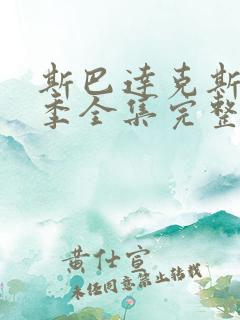 斯巴达克斯
季全集完整
黄仕宣
未经同意禁止转载